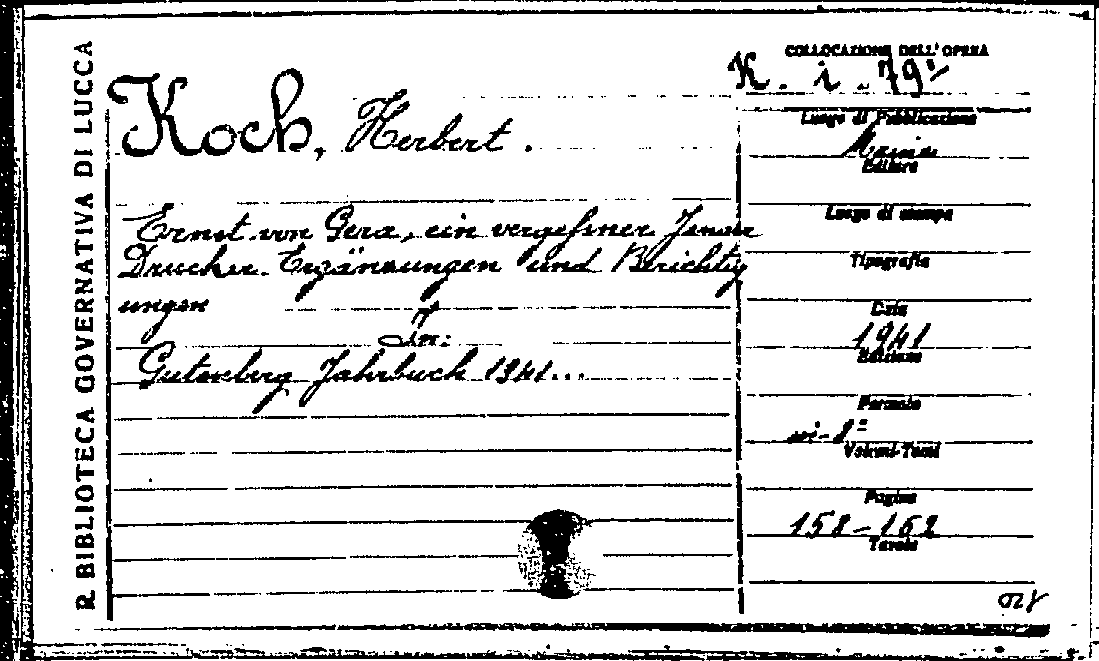 R. BIBLIOTECA GOVERNATIVA DI LUCCA
Koch, Herbert.
Ernst von Gera, ein vergeßner Jenaer
Drucker. Ergänzungen und Berichtig
ungen
In:
Gutenberg Jahrbuch 1941...
COLLOCAZIONE DELL'OPERA
K. i. 79
Luogo di Pubblicazione
Mainz
Editore
Luogo di stampa
Tipografia
Data
1941
Edizione
Formato
in-8°
Volumi-Tomi
Pagine
158-162
Tavole